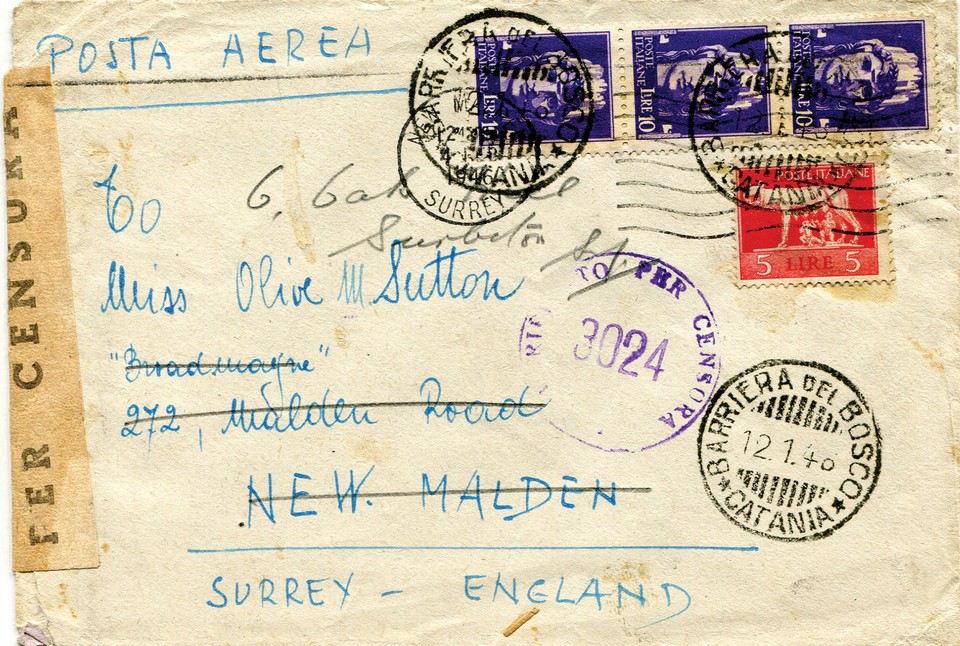 POSTA AEREA
POSTE ITALIANE LIRE 10
POSTE ITALIANE LIRE 10
POSTE ITALIANE LIRE 10
BARRIERA DEL BOSCO
CATANIA
1946
SURREY
BARRIERA
CATANIA
POSTE ITALIANE
5 LIRE 5
To
6, Oak
Surbiton
Miss Olive M. Sutton
TO PER CENSORA
3024
"Broadmayne"
272, Malden Road
NEW. MALDEN
BARRIERA DEL BOSCO
12.1.46
CATANIA
SURREY - ENGLAND
PER CENSURA